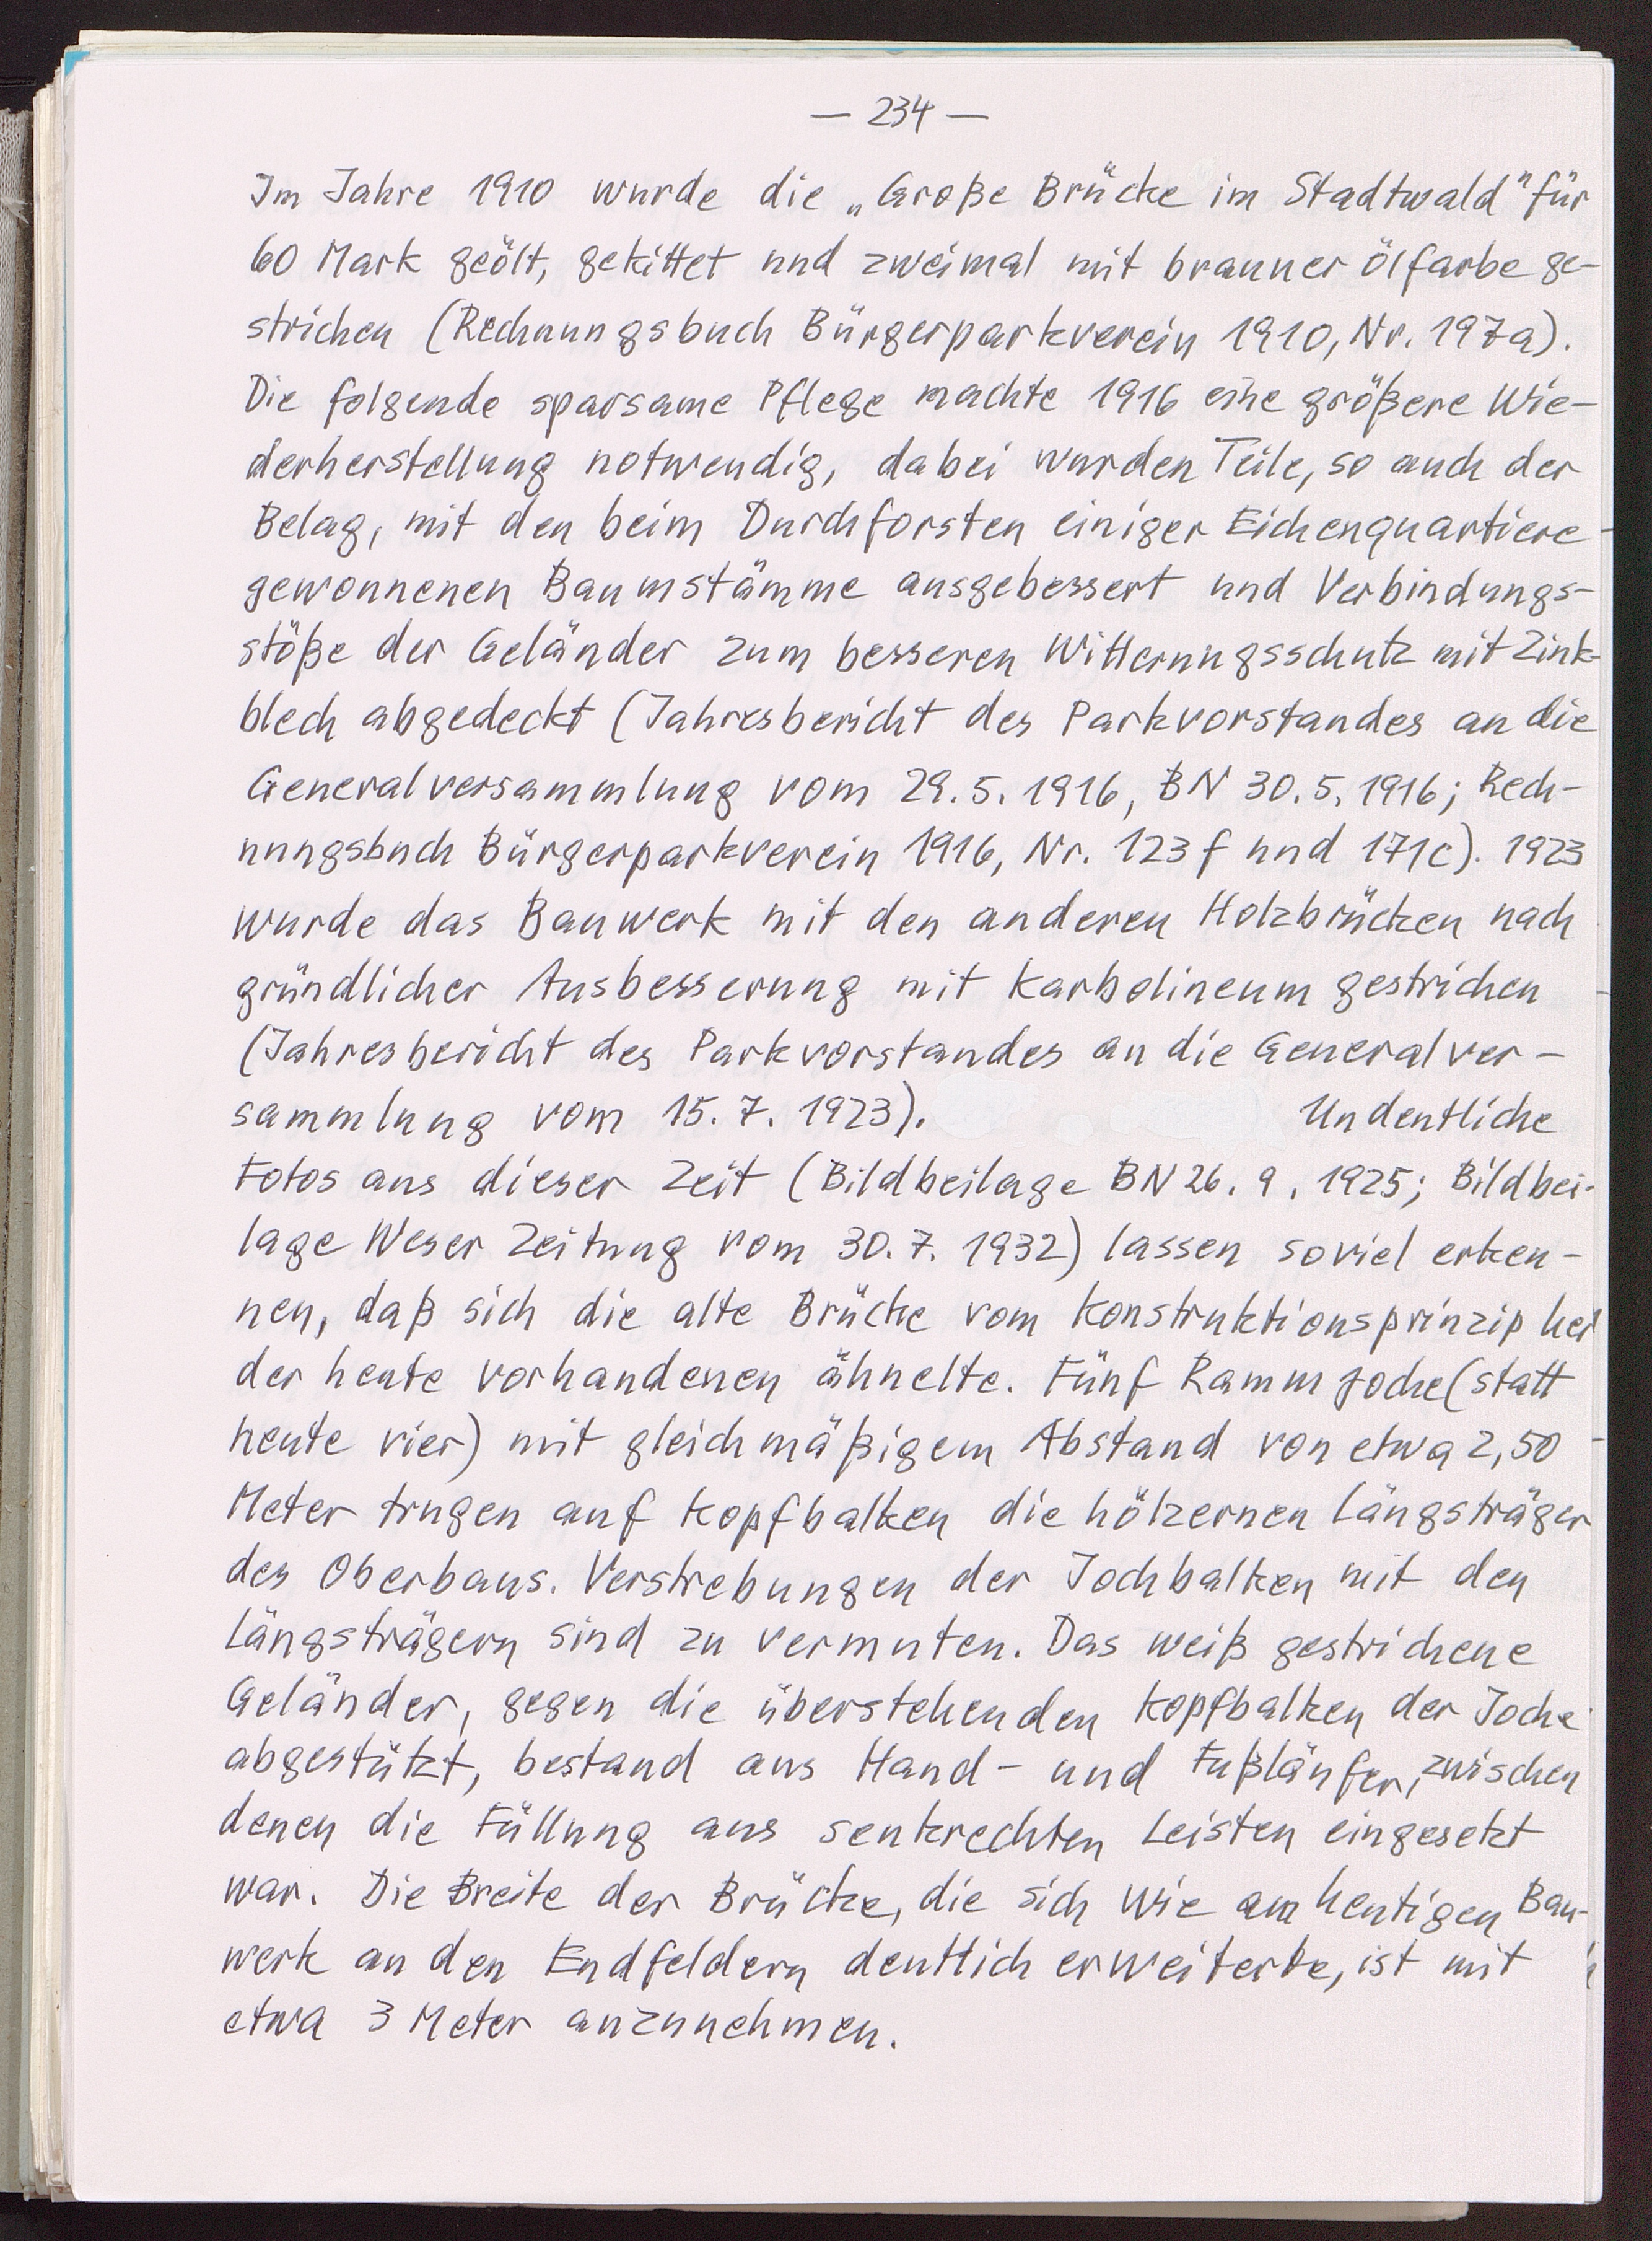 — 234 —
Im Jahre 1910 wurde die „Große Brücke im Stadtwald" für
60 Mark geölt, gekittet und zweimal mit brauner Ölfarbe ge-
strichen (Rechnungsbuch Bürgerparkverein 1910, Nr. 197a).
Die folgende sparsame Pflege machte 1916 eine größere Wie-
derherstellung notwendig, dabei wurden Teile, so auch der
Belag, mit den beim Durchforsten einiger Eichenquartiere
gewonnenen Baumstämme ausgebessert und Verbindungs-
stöße der Geländer zum besseren Witterungsschutz mit Zink-
blech abgedeckt (Jahresbericht des Parkvorstandes an die
Generalversammlung vom 29.5.1916, BN 30.5.1916; Rech-
nungsbuch Bürgerparkverein 1916, Nr. 123f und 171c). 1923
wurde das Bauwerk mit den anderen Holzbrücken nach
gründlicher Ausbesserung mit Karbolineum gestrichen
(Jahresbericht des Parkvorstandes an die Generalver-
sammlung vom 15.7.1923). Undeutliche
Fotos aus dieser Zeit (Bildbeilage BN 26.9.1925; Bildbei-
lage Weser Zeitung vom 30.7.1932) lassen soviel erken-
nen, daß sich die alte Brücke vom Konstruktionsprinzip her
der heute vorhandenen ähnelte. Fünf Rammjoche (statt
heute vier) mit gleichmäßigem Abstand von etwa 2,50
Meter trugen auf Kopfbalken die hölzernen Längsträger
des Oberbaus. Verstrebungen der Jochbalken mit den
Längsträgern sind zu vermuten. Das weiß gestrichene
Geländer, gegen die überstehenden Kopfbalken der Joche
abgestützt, bestand aus Hand- und Fußläufer, zwischen
denen die Füllung aus senkrechten Leisten eingesetzt
war. Die Breite der Brücke, die sich wie am heutigen Bau-
werk an den Endfeldern deutlich erweiterte, ist mit
etwa 3 Meter anzunehmen.